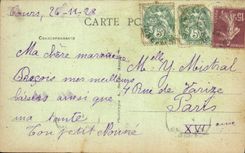 Tours, 26-11-28
CARTE POS
CORRESPONDANCE
Ma chère marraine
Reçois mes meilleurs
baisers ainsi que
ma tante
Ton petit
Melle Y. Mistral
4 Rue de
Paris
XVIème